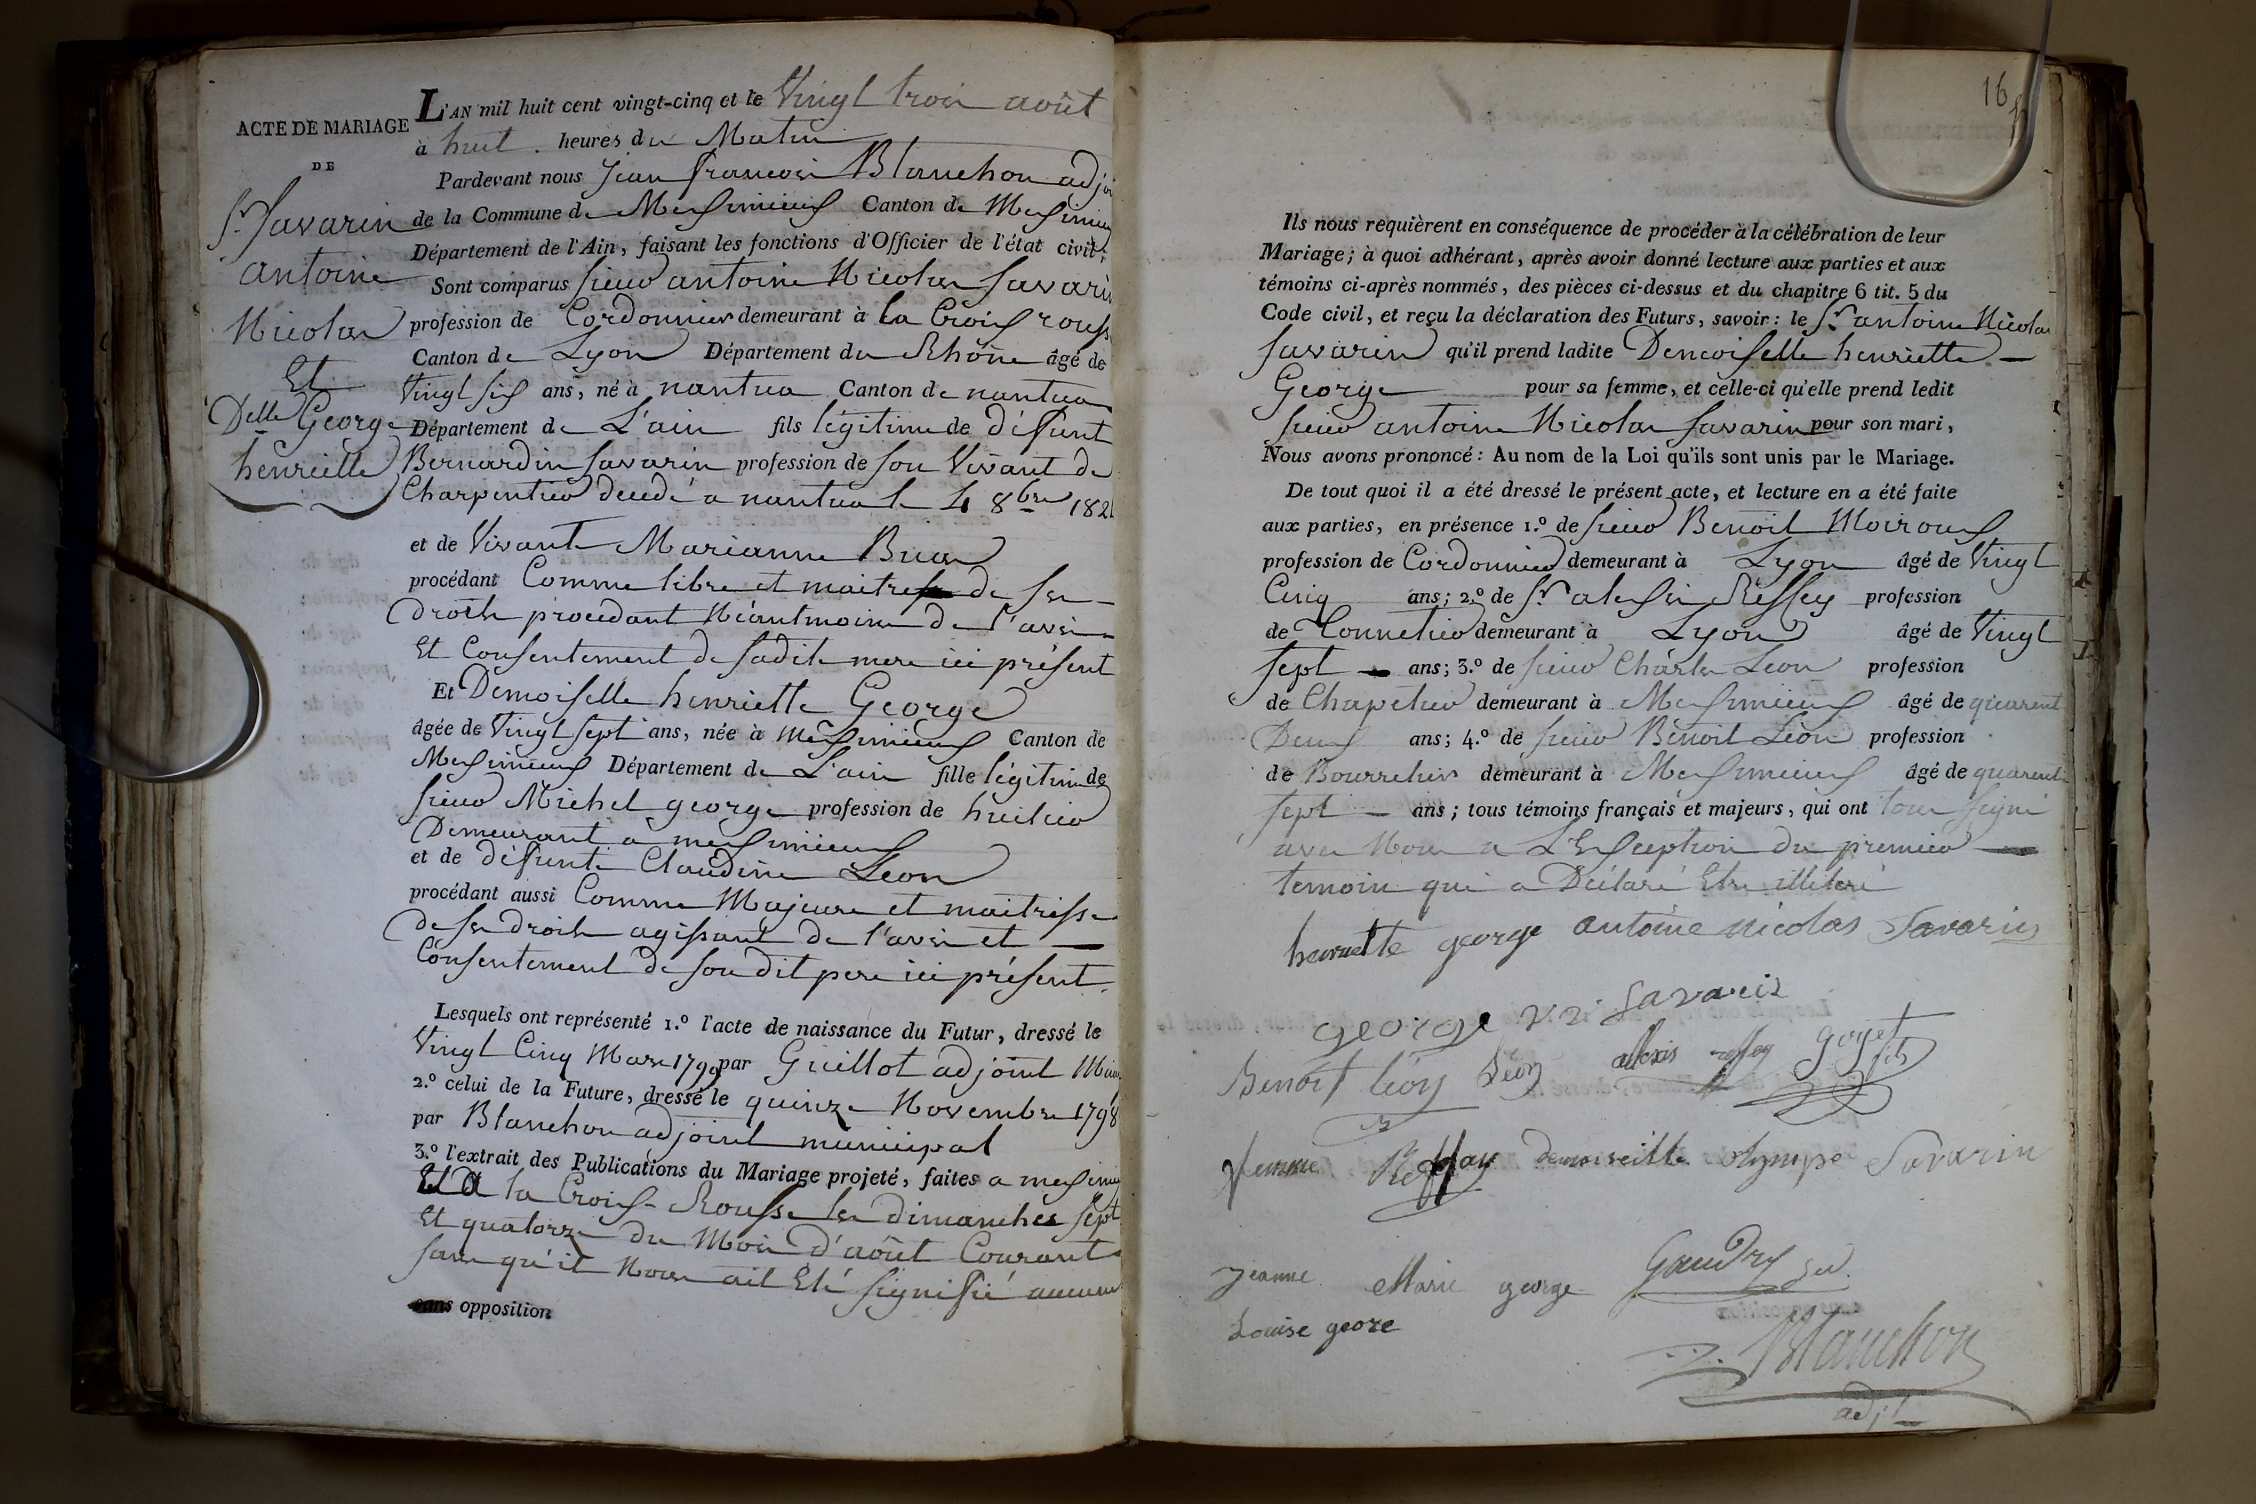 ACTE DE MARIAGE
DE
Sr. Savarin
antoine
Nicolas
Et
Delle George
henriette
L'AN mil huit cent vingt-cinq et le Vingt trois août
à huit heures du Matin
Pardevant nous Jean francois Blanchon adjoi
de la Commune de Meximieux Canton de Meximieux
Département de l'Ain, faisant les fonctions d'Officier de l'état civil,
Sont comparus sieur antoine Nicolas Savarin
profession de Cordonnier demeurant à la Croix rousse
Canton de Lyon Département du Rhône âgé de
Vingt six ans, né à nantua Canton de nantua
Département de L'ain fils légitime de défunt
Bernardin Savarin profession de son Vivant de
Charpentier decedé a nantua le 4 8bre 182
et de Vivante Marianne
procédant Comme libre et maitre de ses
droits procedant Néantmoins de l'avis
Et Consentement de sadite mere ici présent
Et Demoiselle henriette George
âgée de Vingt sept ans, née à Meximieux Canton de
Meximieux Département de L'ain fille légitime de
sieur Michel george profession de huilier
Demeurant a meximieux
et de défunte Claudine Leon
procédant aussi Comme Majeure et maitresse
de ses droits agissant de l'avis et
Consentement de son dit pere ici présent.
Lesquels ont représenté 1.º l'acte de naissance du Futur, dressé le
Vingt Cinq Mars 1799 par Guillot adjoint
2.º celui de la Future, dressé le quinze Novembre 1798
par Blanchon adjoint municipal
3.º l'extrait des Publications du Mariage projeté, faites a meximieux
Et a la Croix-Rousse les dimanches sept
Et quatorze du Mois d'août Courant
sans qu'il Nous ait Eté signifié aucune
sans opposition
16
Ils nous requièrent en conséquence de procéder à la célébration de leur
Mariage; à quoi adhérant, après avoir donné lecture aux parties et aux
témoins ci-après nommés, des pièces ci-dessus et du chapitre 6 tit. 5 du
Code civil, et reçu la déclaration des Futurs, savoir: le Sr. antoine Nicolas
Savarin qu'il prend ladite Demoiselle henriette
George pour sa femme, et celle-ci qu'elle prend ledit
sieur antoine Nicolas Savarin pour son mari,
Nous avons prononcé: Au nom de la Loi qu'ils sont unis par le Mariage.
De tout quoi il a été dressé le présent acte, et lecture en a été faite
aux parties, en présence 1.º de sieur Benoit Moiroux
profession de Cordonnier demeurant à Lyon âgé de Vingt
Cinq ans; 2.º de Sr. alexis profession
de demeurant à Lyon âgé de Vingt
sept ans; 3.º de sieur Charles Leon profession
de Chapelier demeurant à Meximieux âgé de quarente
Deux ans; 4.º de sieur Benoit Léon profession
de Bourrelier demeurant à Meximieux âgé de quarente
sept ans; tous témoins français et majeurs, qui ont tous signé
avec Nous a L'Exception du premier
temoin qui a Déclaré Etre illiteré
henriette george antoine nicolas Savarin
george Savarin
Benoit léon Léon alexis goyet fils
femme demoiseille olympe Savarin
jeanne Marie george Gaudry
Louise geore
Blanchon
adjt